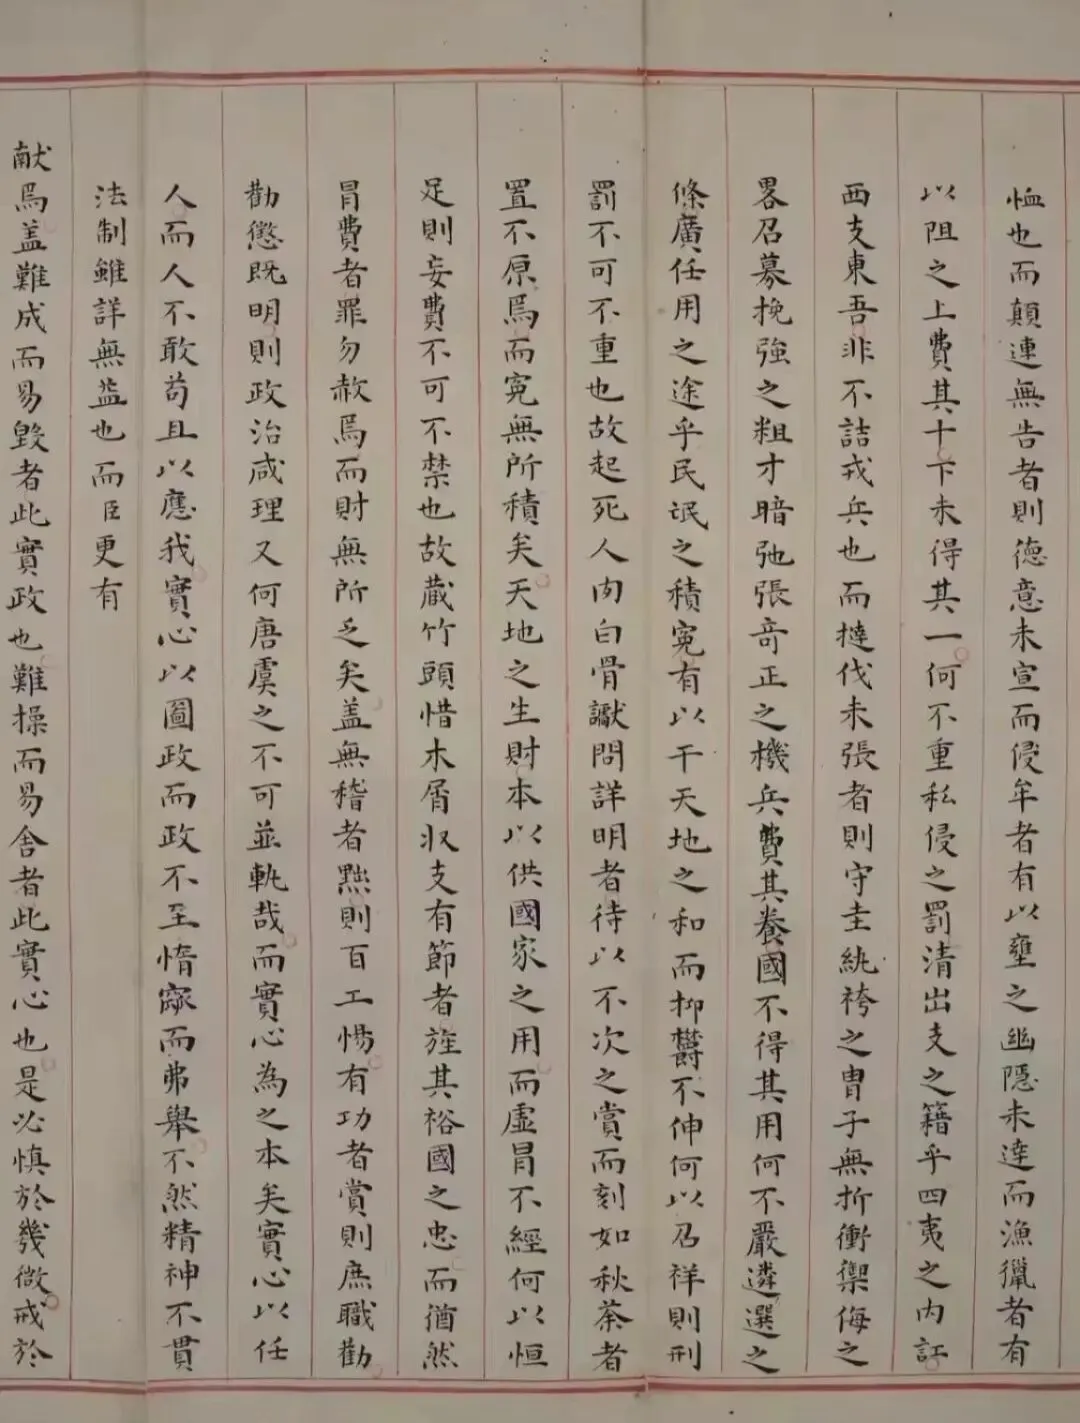 恤也而顛連無告者則德意未宣而侵牟者有以壅之幽隱未達而漁獵者有
以阻之上費其十下未得其一何不重私侵之罰清出支之籍乎四夷之內訌
西支東吾非不詰戎兵也而撻伐未張者則守圭紈袴之冑子無折衝禦侮之
畧召募挽強之粗才暗弛張竒正之機兵費其養國不得其用何不嚴遴選之
條廣任用之途乎民氓之積寃有以干天地之和而抑欝不伸何以召祥則刑
罰不可不重也故起死人肉白骨讞問詳明者待以不次之賞而刻如秋荼者
置不原焉而寃無所積矣天地之生財本以供國家之用而虛冒不經何以恒
足則妄費不可不禁也故藏竹頭惜木屑収支有節者旌其裕國之忠而猶然
冒費者罪勿赦焉而財無所乏矣盖無稽者黜則百工惕有功者賞則庶職勸
勸懲既明則政治咸理又何唐虞之不可並軌哉而實心為之本矣實心以任
人而人不敢苟且以應我實心以圖政而政不至惰窳而弗舉不然精神不貫
法制雖詳無益也而臣更有
献焉盖難成而易毀者此實政也難操而易舍者此實心也是必慎於幾微戒於